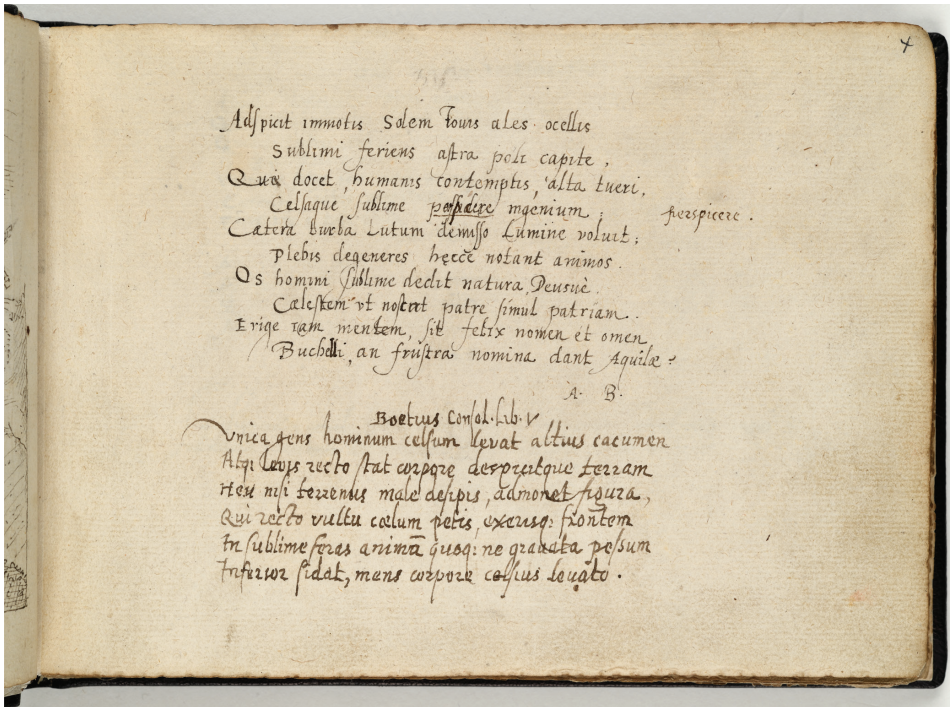 4
Adspicit immotis Solem Iouis ales ocellis
Sublimi feriens astra poli capite,
Qui docet, humanis contemptis, alta tueri,
Celsaque sublime ingenium; perspicere.
Cætera turba Lutum demisso Lumine voluit;
Plebis degeneres hęcce notant animos.
Os homini sublime dedit natura, Deusue
Cælestem vt noscat patre simul patriam.
Erige iam mentem, sit felix nomen et omen
Buchelli, an frustra nomina dant Aquilæ?
A. B.
Boetius Consol. Lib. V
Vnica gens hominum celsum levat altius cacumen
Atqi levis recto stat corpore despicitque terram
Heu nisi terrenus male desipis, admonet figura,
Qui recto vultu cœlum petis, exerisq; frontem
In sublime feras animū quoq; ne grauata pessum
Inferior sidat, mens corpore celsius leuato.